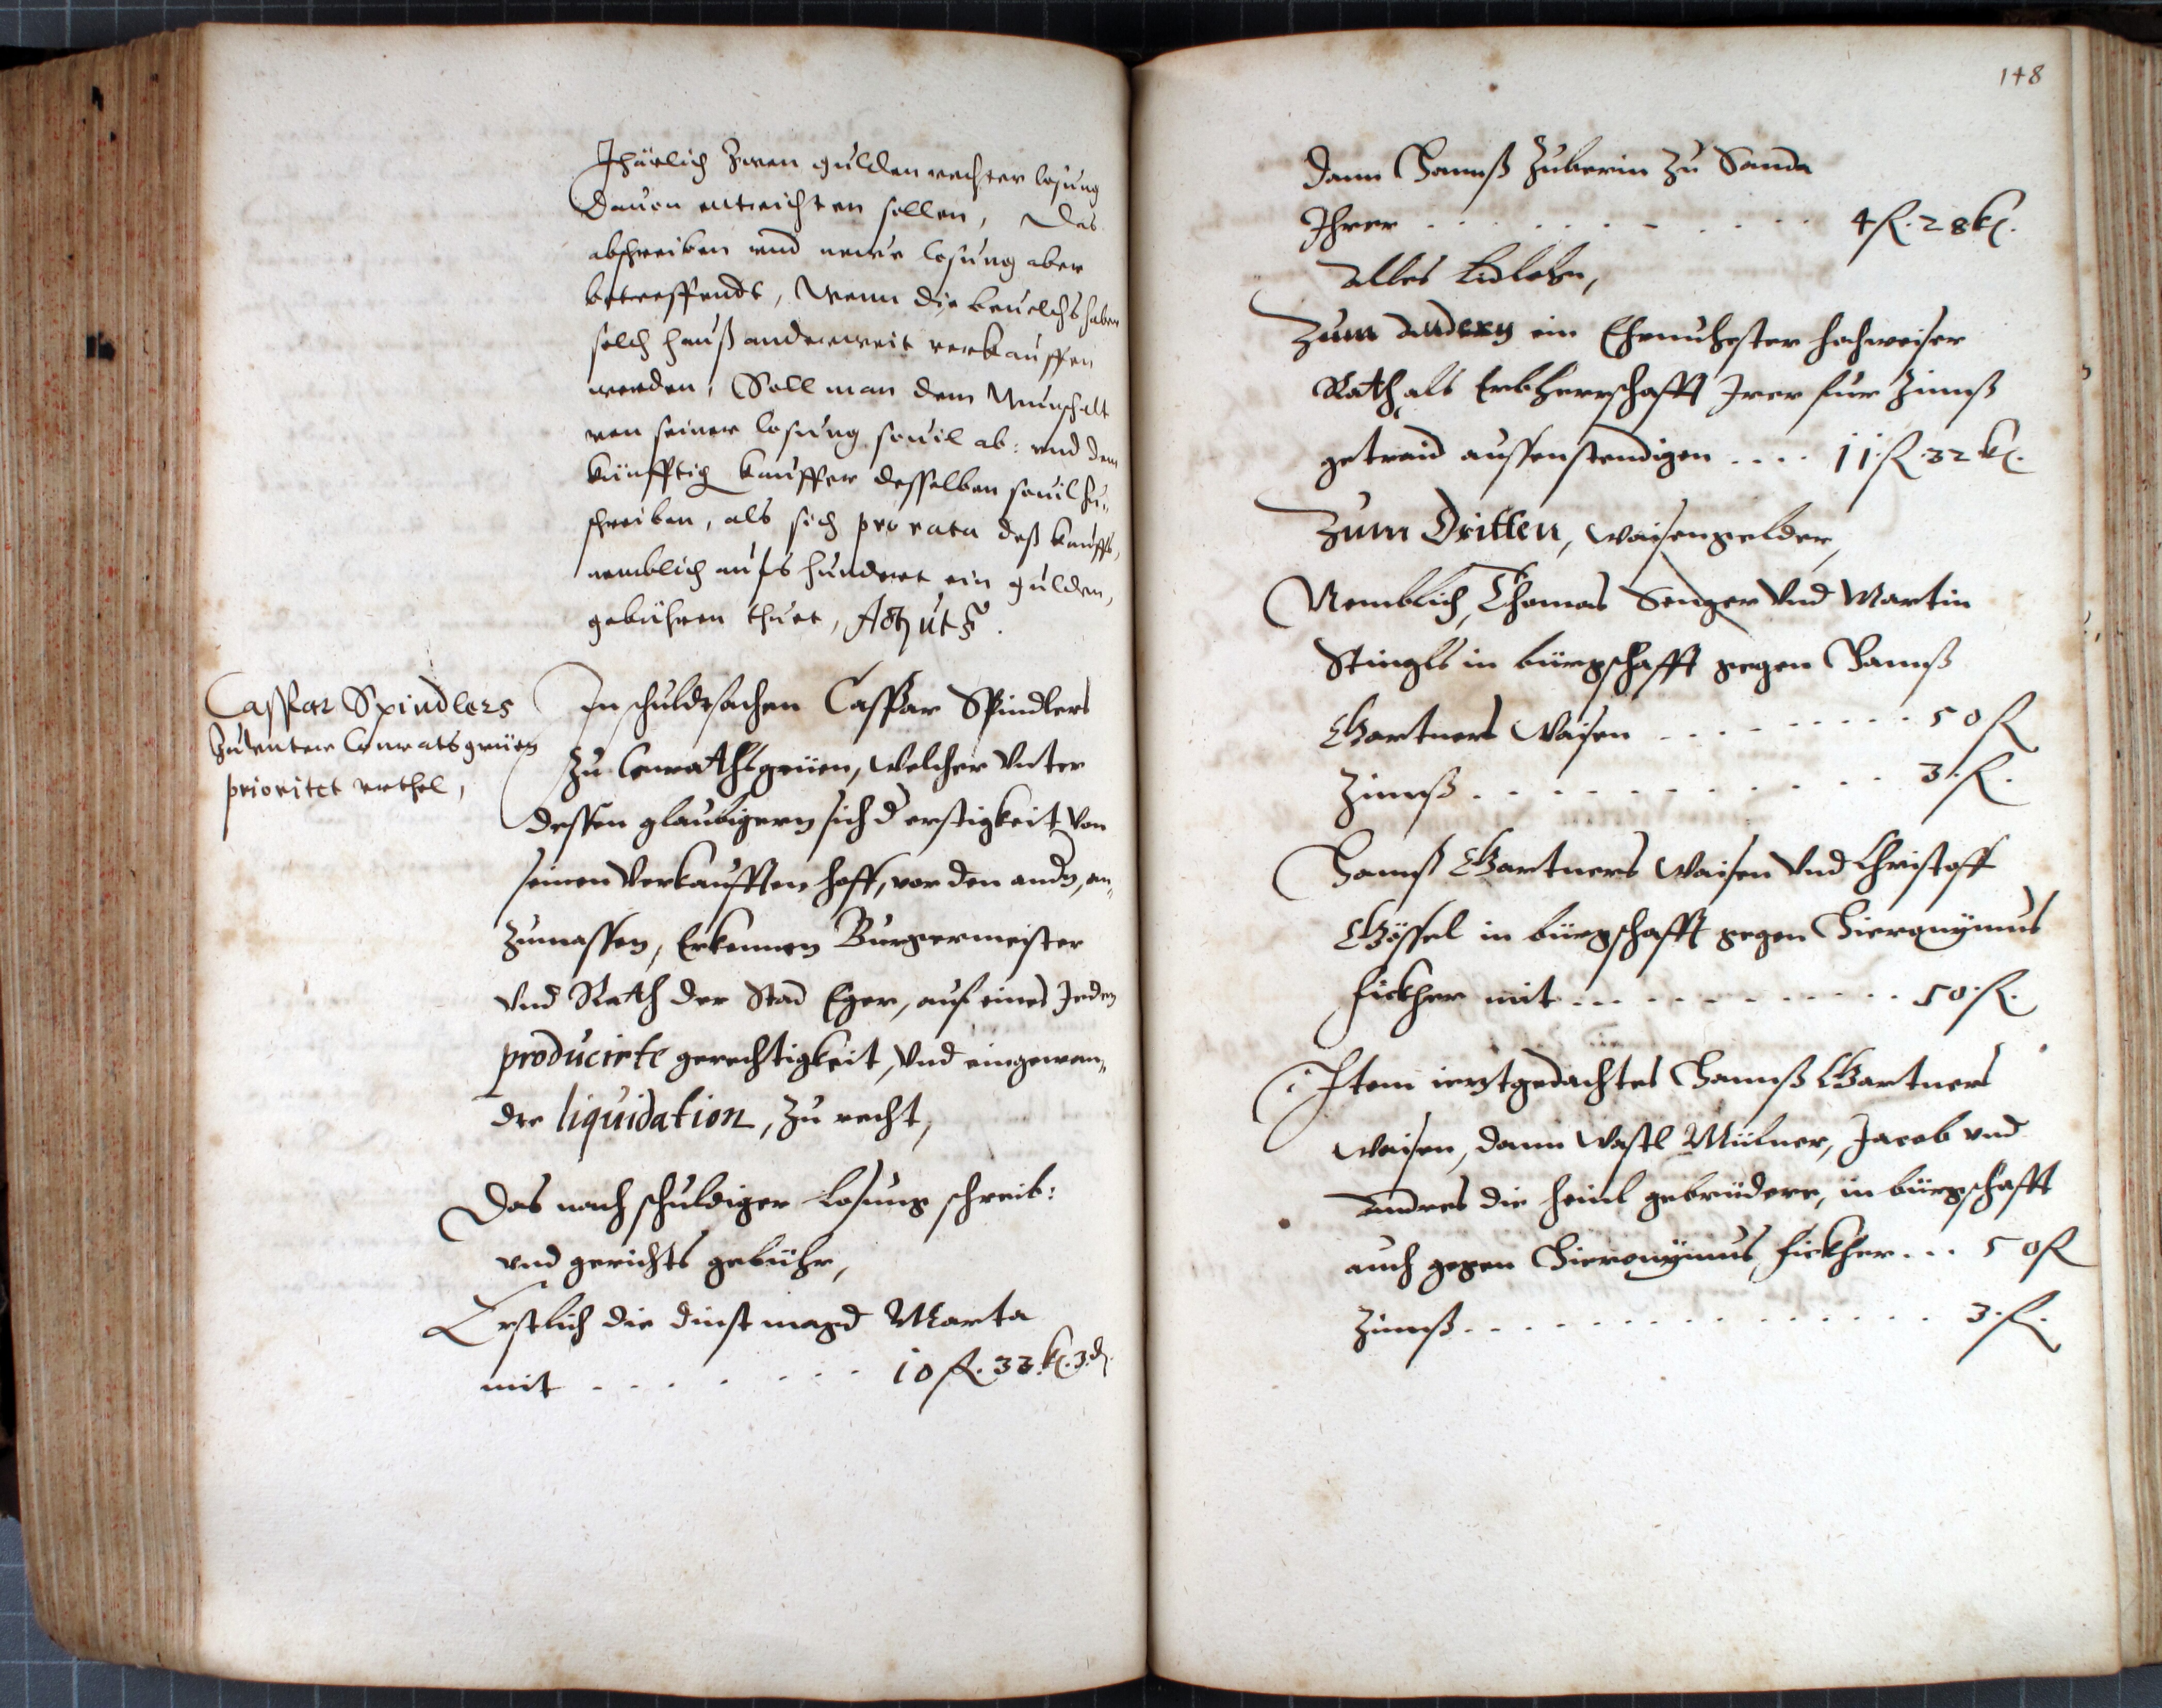 Jhärlich zwen gulden rechter losung
dauon entrichten sollen, Das
abschreiben vnd newe losung aber
betreffendt, Wenn die beuelchshaber
solch hauß anderweit verkauffen
werden, Soll man dem Wunschalt
von seiner losung souil ab: vnd dem
künfftig kauffer desselben souil zu„
schreiben, als sich pro rata deß kauffs,
nemblich aufs hundert ein gulden,
gebühren thuet, Actum ut s
Caspar Spindlers
zu vnter Conratsgrüen
prioritet vrthel,
In schuldtsachen Casspar Spindlers
zu Conrathsgrüen, welcher vnter
dessen glaubigern sich d erstigkeit von
seinen verkaufften hoff, vor den andn, an„
zumassen, Erkennen Burgermeister
vnd Rath der Stad Eger, auf eines Jeden
producirte gerechtigkeit, vnd eingewan„
dte liquidation, zu recht,
Das nach schuldiger Losung schreib:
vnd gerichts gebühr,
Erstlich die dinst magd Marta
mit . . . . . . . 10 fl. 33 kr. 3 d.
148
Dann Hannß Zuberin zu Sanda
Ihrer . . . . . . . . . . 4 fl. 28 kr.
Alles Lidlohn,
Zum Andern ein Ehrnuhester hochweiser
Rath als Erbherrschafft Irer für Zinnß
getraid aussenstendigen . . . . 11 fl. 32 kr.
Zum Dritten, waisengelder,
Nemblich, Thomas Senger vnd Martin
Stingls in bürgschafft gegen Hannß
Gartners Waisen . . . . . . . . . 50 fl
Zinnß . . . . . . . . . . . 3. fl.
Hannß Gartners Waisen vnd Christoff
Gössel in bürgschafft gegen Hieronÿmus
fickher mit . . . . . . . . . . . 50. fl.
Item ierztgedachtes Hannß Gartners
Waisen, dann Wastl Mülner, Jacob vnd
Andres die Heinl gebrüdere, in bürgschafft
auch gegen Hieronÿmus fickher . . . 50 fl
Zinnß . . . . . . . . . . . . . . . 3. fl.